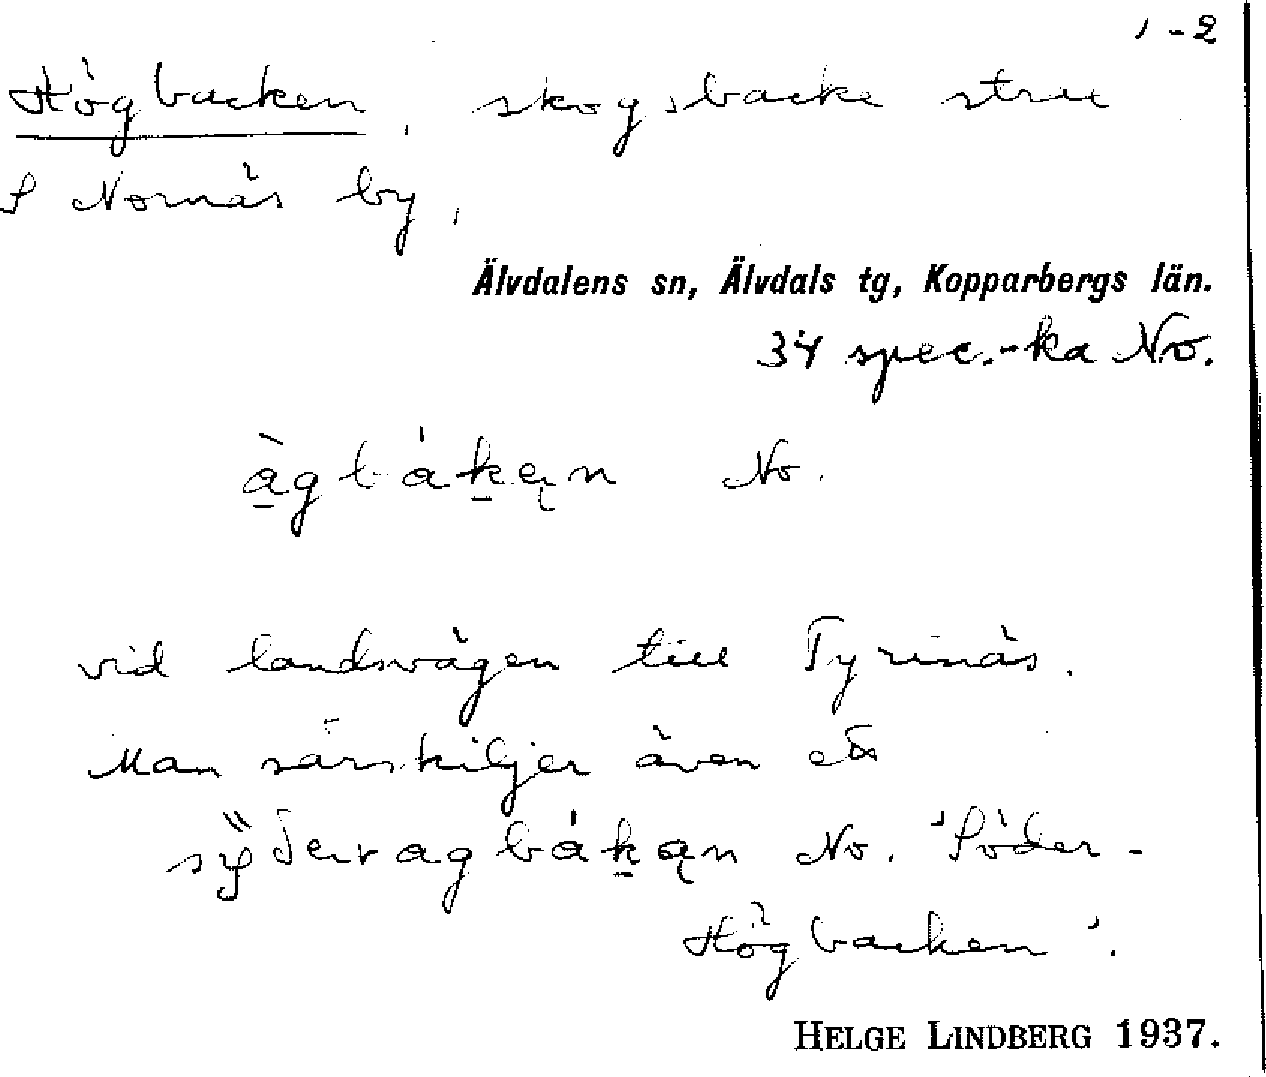 1-2
Högbacken, skogsbacke strax
S Nornäs by,
Älvdalens sn, Älvdals tg, Kopparbergs län.
34 spec.-ka No.
àgbákąn No.
vid landsvägen till Tyrinäs.
Man särskiljer även
agbákąn No. 'Söder-
Högbacken'.
HELGE LINDBERG 1937.